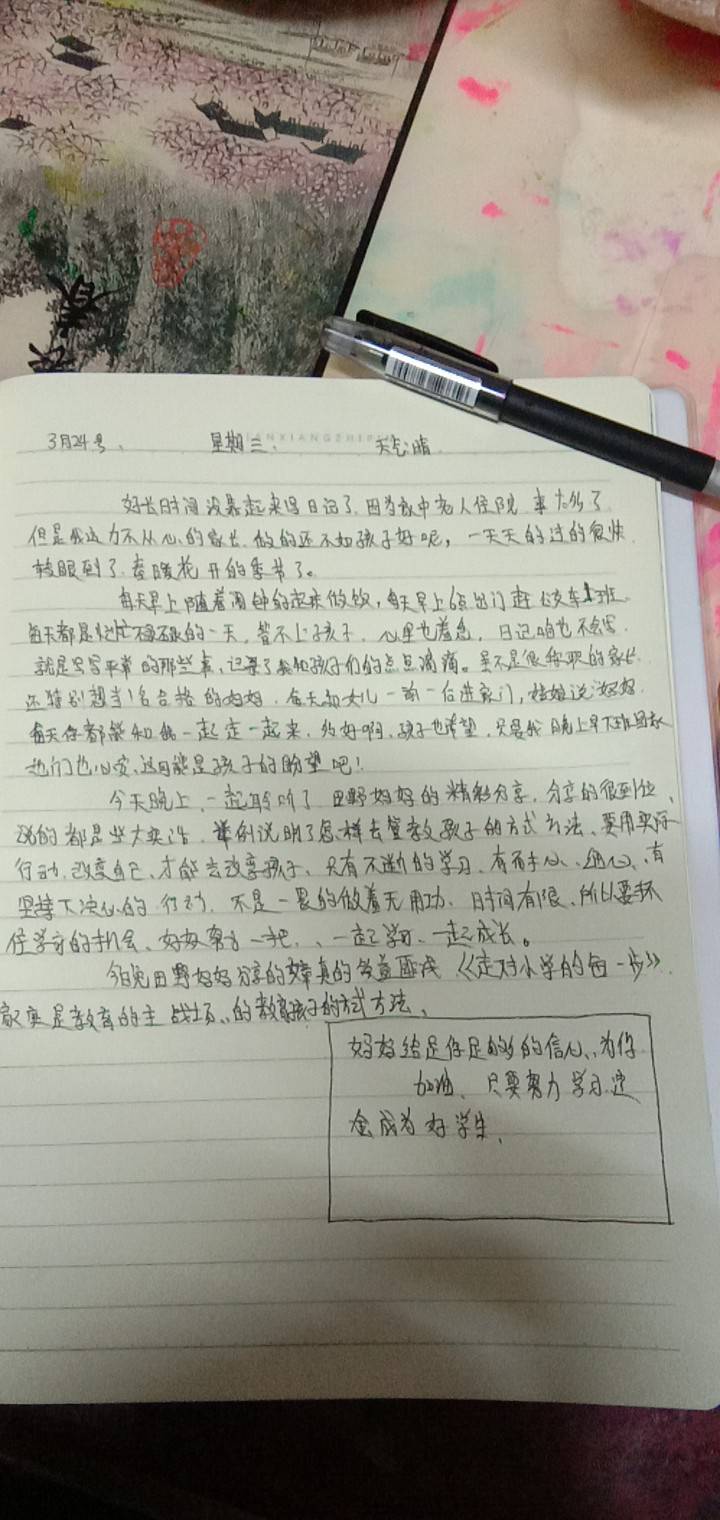 春
3月24号、 星期三、 天气:晴
好长时间没拿起来写日记了,因为家中老人住院,事太多了
但是我这力不从心的家长,做的还不如孩子好呢,一天天的过的很快
转眼到了春暖花开的季节了。
每天早上随着闹钟的起来做饭,每天早上6点出门赶公交车上班
每天都是忙忙的一天,管不上孩子,心里也着急,日记咱也不会写
就是只写平常的那些事,记录了我和孩子们的点点滴滴。虽不是很称职的家长
还特别想当1名合格的妈妈,每天和女儿一前一后进家门,姑娘说妈妈
每天你都能和我一起走一起来,多好啊,孩子也希望,只是我晚上早下班回家
他们也心安,这可能是孩子的盼望吧!
今天晚上,一起聆听了田野妈妈的精彩分享,分享的很到位、
说的都是些大实话,举例说明了怎样去管教孩子的方式方法、要用实际
行动,改变自己,才能去改变孩子,只有不断的学习,有耐心、细心、有
坚持下决心的行动,不是一昧的做着无用功、时间有限、所以要抓
住学习的机会、好好努力一把、、一起学习、一起成长。
今晚田野妈妈分享的文章真的受益匪浅《走对小学的每一步》
家真是教育的主战场、的教育孩子的方式方法、
妈妈给足你足够的信心、为你
加油、只要努力学习定
会成为好学生、